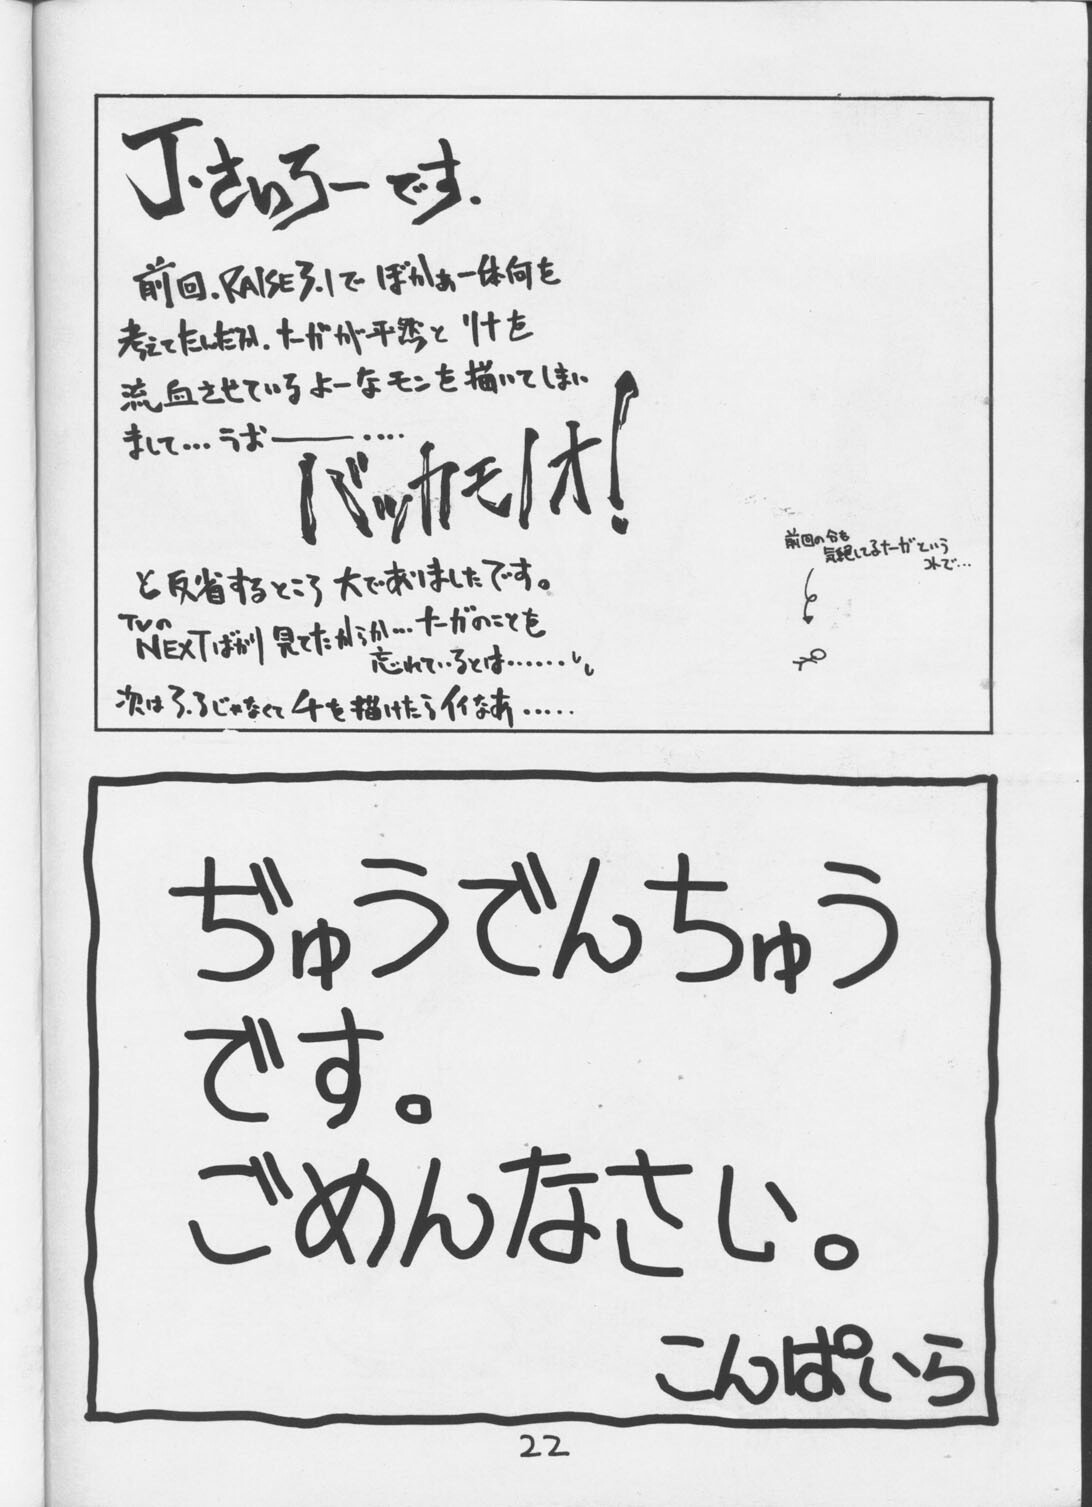 J・さいろーです.
前回.RAISE3.1でぼかぁ一体何を
考えてたんだか.ナーガが平然とリナを
流血させているよーなモンを描いてしまい
まして…うお―――‥‥
バッカモノオ!
と反省するところ大でありましたです。
TVの
NEXTばかり見てたからか…ナーガのことを
忘れているとは‥‥‥
次はろ.ろじゃなくて4を描けたらイイなあ‥‥‥
前回の分も
気絶してるナーガという
コトで…
ぢゅうでんちゅう
です。
ごめんなさい。
こんぱいら
22